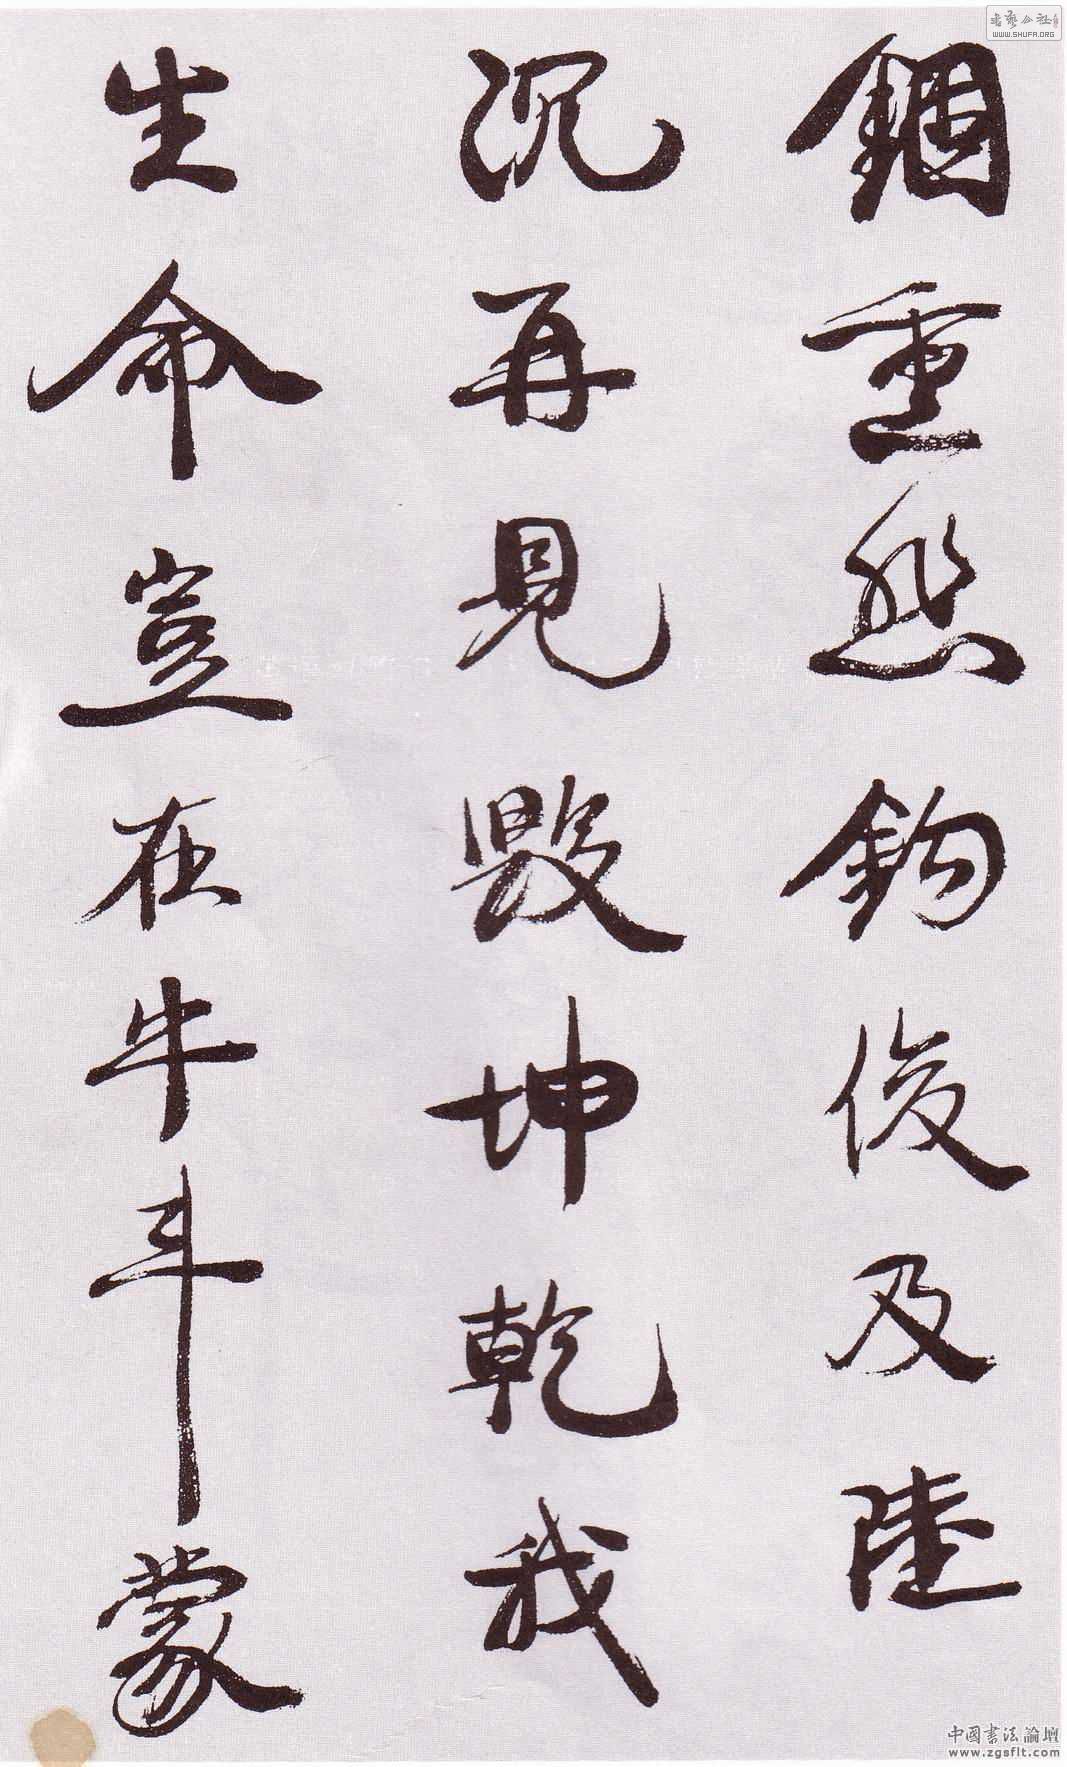 錮重然鈎俊及陸
沉再見毀坤乾我
生命豈在牛斗蒙
书艺公社
WWW.SHUFA.ORG
中國書法論壇
www.zgsflt.com